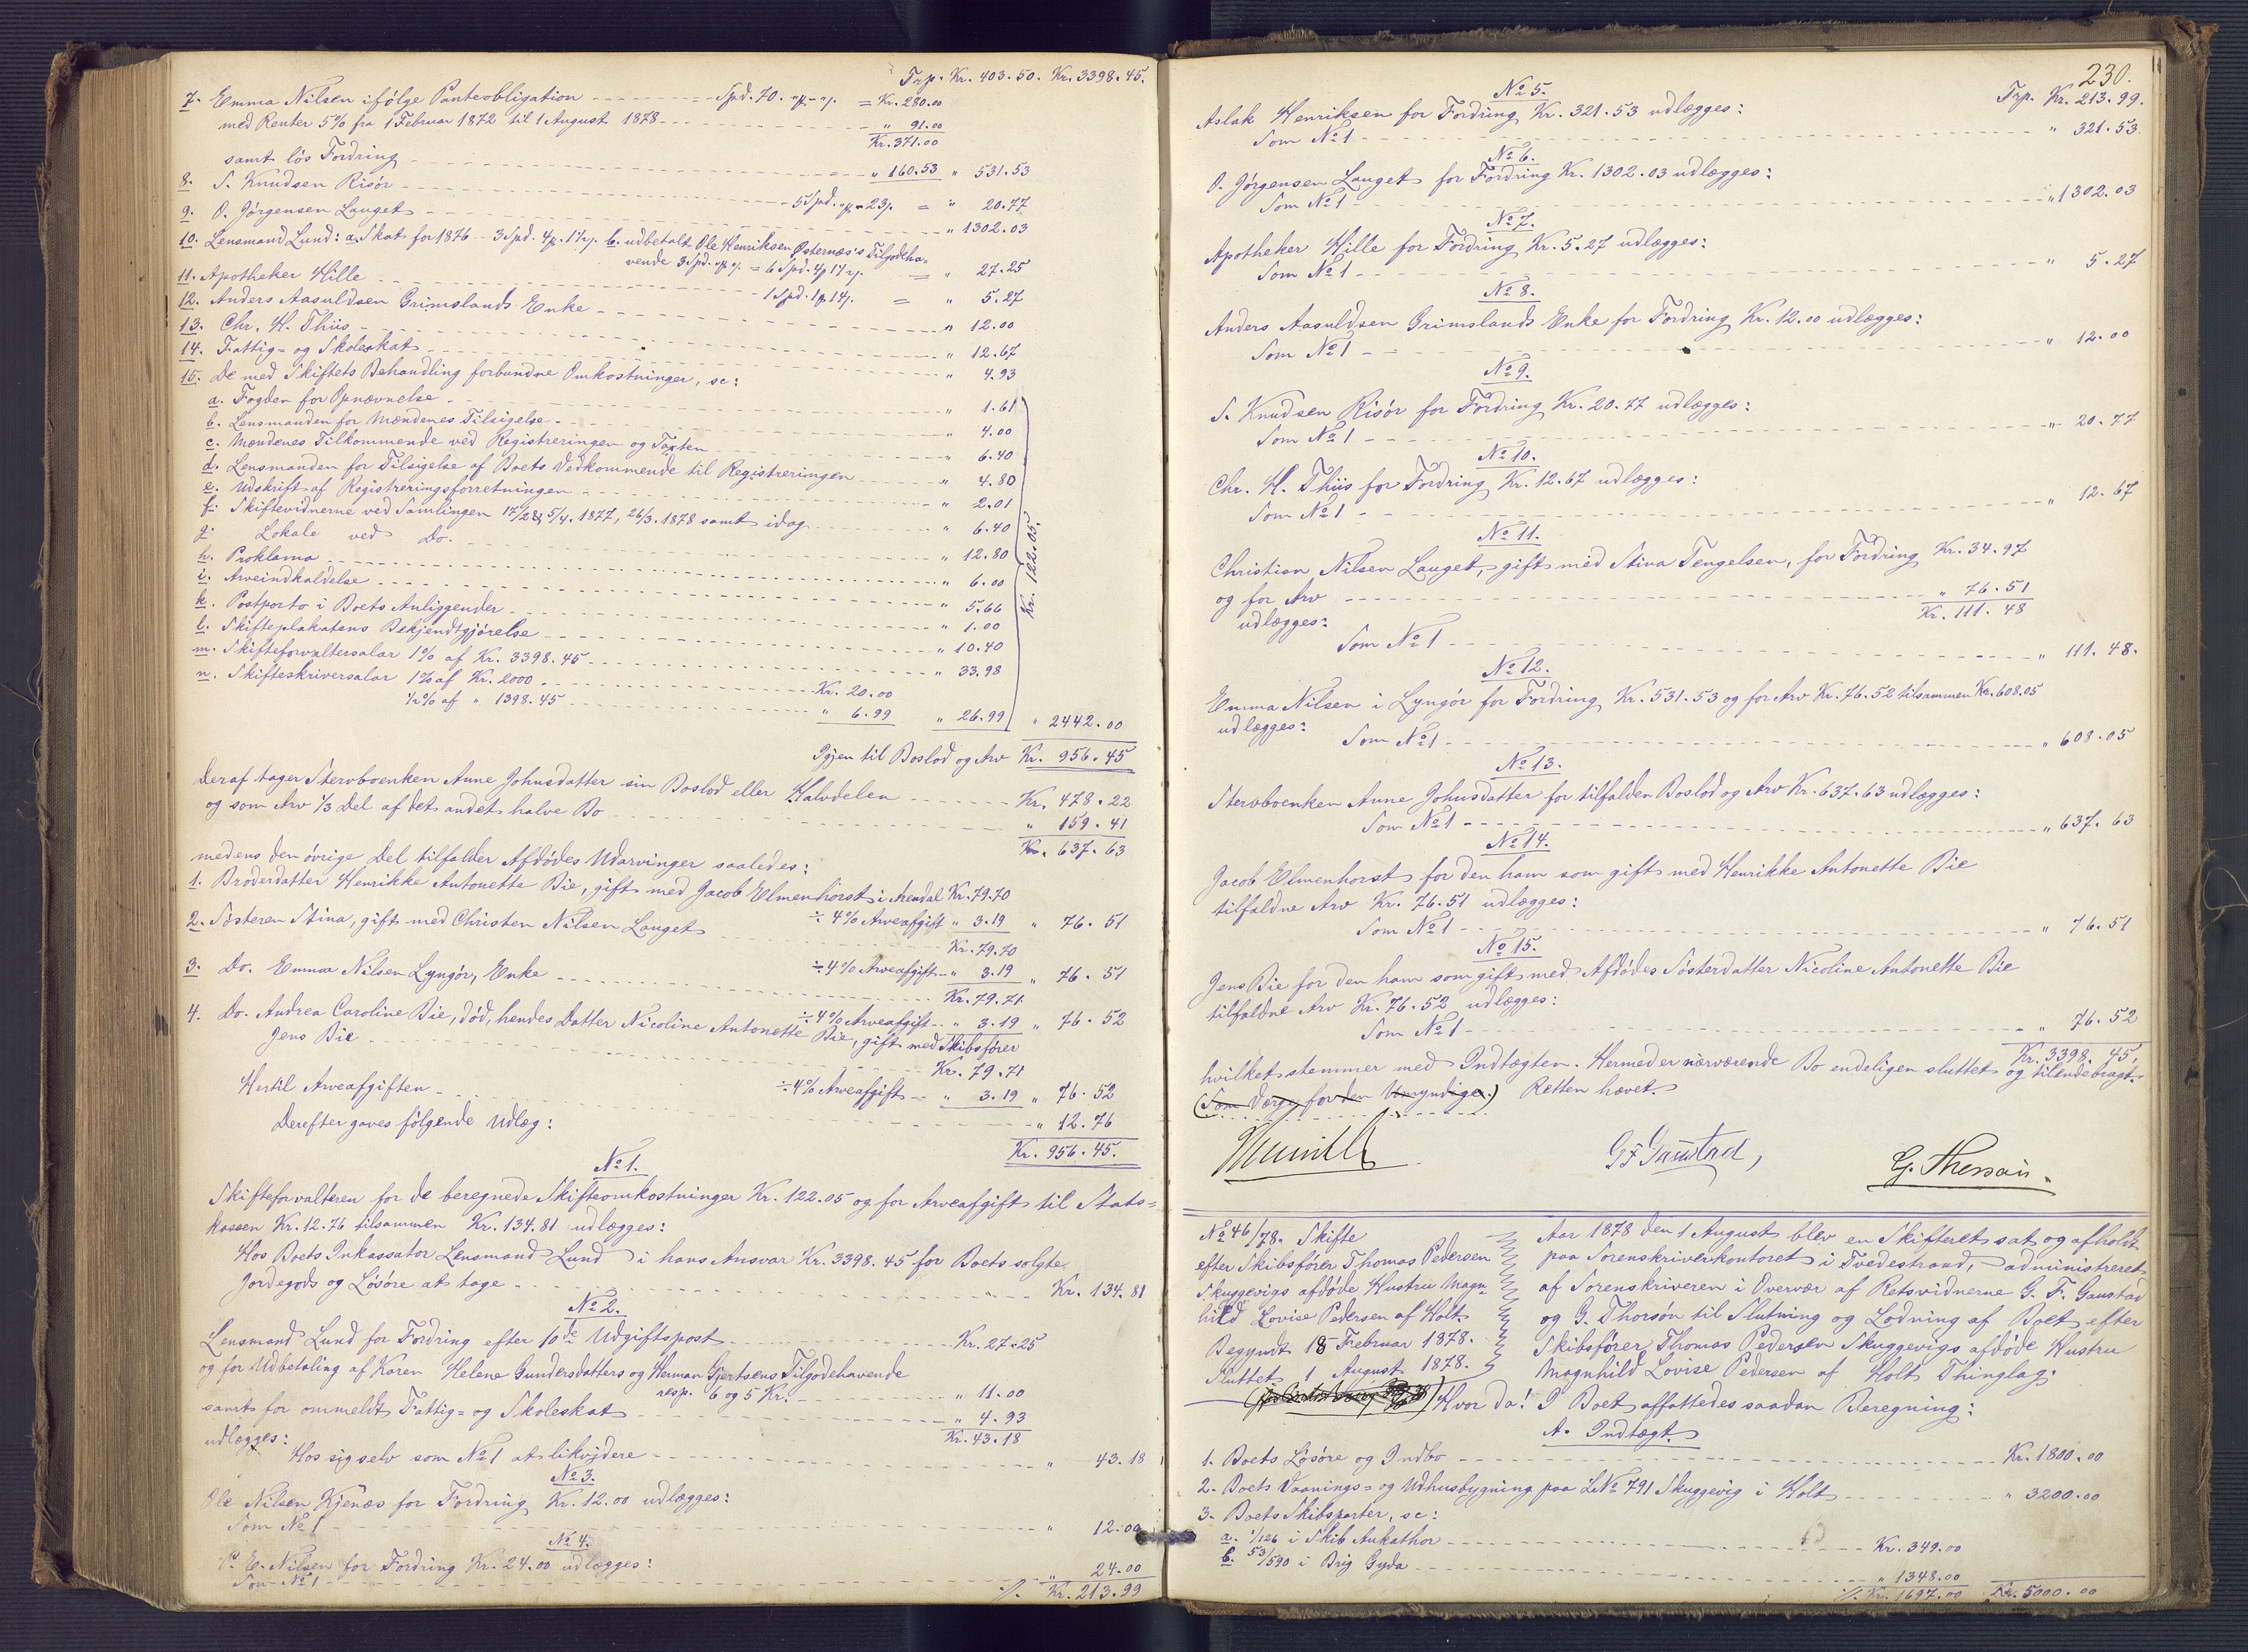 Trp. Kr. 403.50. Kr. 3398.45.
7. Emma Nilsen ifölge Panteobligation Spd. 70. "/- "/. = Kr. 280.00
med Renter 5% fra 1 Februar 1872 til 1 August 1878 " 91.00
Kr. 371.00
samt lös Fordring " 160.53 " 531.53
8. S. Knudsen Risör 5 Spd. " 23 = " 20.77
9. O. Jörgensen Lauget " 1302.03
10. Lensmand Lund: a. Skat for 1876 3 Spd. 4 17. b. udbetalt Ole Henriksen Østernæs's Tilgodeha-
vende 3 Spd. = 6 Spd. 4 17. = " 27.25
11. Apotheker Hille 1 Spd. 1 14. = " 5.27
12. Anders Aasuldsen Grimslands Enke " 12.00
13. Chr. H. Thiis " 12.67
14. Fattig= og Skoleskat " 4.93
15. De med Skiftets Behandling forbundne Omkostninger, sc:
a. Fogden for Opnævnelse " 1.61
b. Lensmanden for Mændenes Tilsigelse " 4.00
c. Mændenes Tilkommende ved Registreringen og Taxten " 6.40
d. Lensmanden for Tilsigelse af Boets Vedkommende til Registreringen " 4.80
e. Udskrift af Registreringsforretningen " 2.01
f. Skiftevidnerne ved Samlingen 17/2 & 5/4. 1877, 26/3. 1878 samt idag " 6.40
g. Lokale ved Do. " 12.80
h. Proklama " 6.00
i. Arveindkaldelse " 5.66
k. Postporto i Boets Anliggender " 1.00
l. Skifteplakatens Bekjendtgjörelse " 10.40
m. Skifteforvaltersalar 1% af Kr. 3398.45 " 33.98
n. Skifteskriversalar 1% af Kr. 2000 Kr. 20.00
1/2% af " 1398.45 " 6.99 " 26.99 " 2442.00
Kr. 122.05.
Igjen til Boslod og Arv Kr. 956.45
Deraf tager Stervboenken Anne Johnsdatter sin Boslod eller Halvdelen Kr. 478.22
og som Arv 1/3 Del af det andet halve Bo " 159.41
Kr. 637.63
medens den övrige Del tilfalder Afdödes Udarvinger saaledes:
1. Broderdatter Henrikke Antonette Bie, gift med Jacob Elmenhorst i Arendal Kr. 79.70
÷ 4% Arveafgift " 3.19 " 76.51
2. Sösteren Stina, gift med Christen Nilsen Lauget Kr. 79.70
÷ 4% Arveafgift " 3.19 " 76.51
3. Do. Emma Nilsen Lyngör, Enke Kr. 79.71
÷ 4% Arveafgift " 3.19 " 76.52
4. Do. Andrea Caroline Bie, död, hendes Datter Nicoline Antonette Bie, gift med Skibsförer
Jens Bie Kr. 79.71
÷ 4% Arveafgift " 3.19 " 76.52
Hertil Arveafgiften " 12.76
Kr. 956.45.
Derefter gaves fölgende Udlæg:
No 1.
Skifteforvalteren for de beregnede Skifteomkostninger Kr. 122.05 og for Arveafgift til Stats=
kassen Kr. 12.76 tilsammen Kr. 134.81 udlægges:
Hos Boets Inkassator Lensmand Lund i hans Ansvar Kr. 3398.45 for Boets solgte
Jordegods og Lösöre at tage Kr. 134.81
No 2.
Lensmand Lund for Fordring efter 10de Udgiftspost Kr. 27.25
og for Udbetaling af Karen Helene Gundersdatters og Herman Gjertsens Tilgodehavende
resp. 6 og 5 Kr. " 11.00
samt for ommeldt Fattig= og Skoleskat " 4.93
Kr. 43.18
udlægges:
Hos sig selv som No 1 at likvidere " 43.18
No 3.
Ole Nilsen Kjenæs for Fordring Kr. 12.00 udlægges:
Som No 1 " 12.00
No 4.
P. E. Nilsen for Fordring Kr. 24.00 udlægges:
Som No 1 " 24.00
./. Kr. 213.99
230.
Trp. Kr. 213.99.
No 5.
Aslak Henriksen for Fordring Kr. 321.53 udlægges:
Som No 1 " 321.53.
No 6.
O. Jörgensen Lauget for Fordring Kr. 1302.03 udlægges:
Som No 1 " 1302.03
No 7.
Apotheker Hille for Fordring Kr. 5.27 udlægges:
Som No 1 " 5.27
No 8.
Anders Aasuldsen Grimslands Enke for Fordring Kr. 12.00 udlægges:
Som No 1 " 12.00
No 9.
S. Knudsen Risör for Fordring Kr. 20.77 udlægges:
Som No 1 " 20.77
No 10.
Chr. H. Thiis for Fordring Kr. 12.67 udlægges:
Som No 1 " 12.67
No 11.
Christian Nilsen Lauget, gift med Stina Tengelsen, for Fordring Kr. 34.97
og for Arv " 76.51
Kr. 111.48
udlægges:
Som No 1 " 111.48.
No 12.
Emma Nilsen i Lyngör for Fordring Kr. 531.53 og for Arv Kr. 76.52 tilsammen Kr. 608.05
udlægges:
Som No 1 " 608.05
No 13.
Stervboenken Anne Johnsdatter for tilfalden Boslod og Arv Kr. 637.63 udlægges:
Som No 1 " 637.63
No 14.
Jacob Elmenhorst for den ham som gift med Henrikke Antonette Bie
tilfaldne Arv Kr. 76.51 udlægges:
Som No 1 " 76.51
No 15.
Jens Bie for den ham som gift med Afdödes Sösterdatter Nicoline Antonette Bie
tilfaldne Arv Kr. 76.52 udlægges:
Som No 1 " 76.52
Kr. 3398.45,
hvilket stemmer med Indtægten. Hermed er nærværende Bo endeligen sluttet og tilendebragt.
(Som Værge for den Umyndige.) Retten hævet.
G F Gaustad, G. Thorsön.
No 46/78. Skifte
efter Skibsförer Thomas Pedersen
Skuggevigs afdöde Hustru Magn-
hild Lovise Pedersen af Holt.
Begyndt 18 Februar 1878.
Sluttet 1 August 1878.
Aar 1878 den 1 August blev en Skifteret sat og afholdt
paa Sorenskriverkontoret i Tvedestrand, administreret
af Sorenskriveren i Overvær af Retsvidnerne G. F. Gaustad
og G. Thorsön til Slutning og Lodning af Boet efter
Skibsförer Thomas Pedersen Skuggevigs afdöde Hustru
Magnhild Lovise Pedersen af Holt Thinglag.
Hvor da! I Boet affattedes saadan Beregning:
A. Indtægt.
1. Boets Lösöre og Indbo Kr. 1800.00
2. Boets Vaanings= og Udhusbygning paa LNo 791 Skuggevig i Holt " 3200.00
3. Boets Skibsparter, sc:
a. 1/126 i Skib Aukathor Kr. 349.00
b. 53/590 i Brig Gyda " 1348.00
./. Kr. 1697.00 Kr. 5000.00